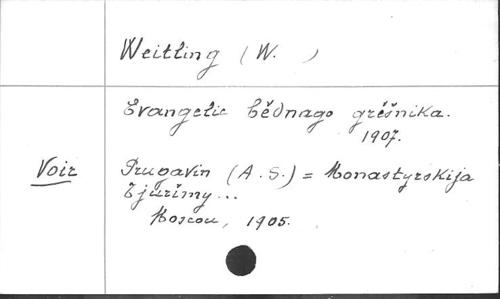 Weitling (W. )
Evangelie bědnago grěšnika.
1907.
Voir
Prugavin (A.S.) = Monastyrskija
tjurimy...
Moscou, 1905.